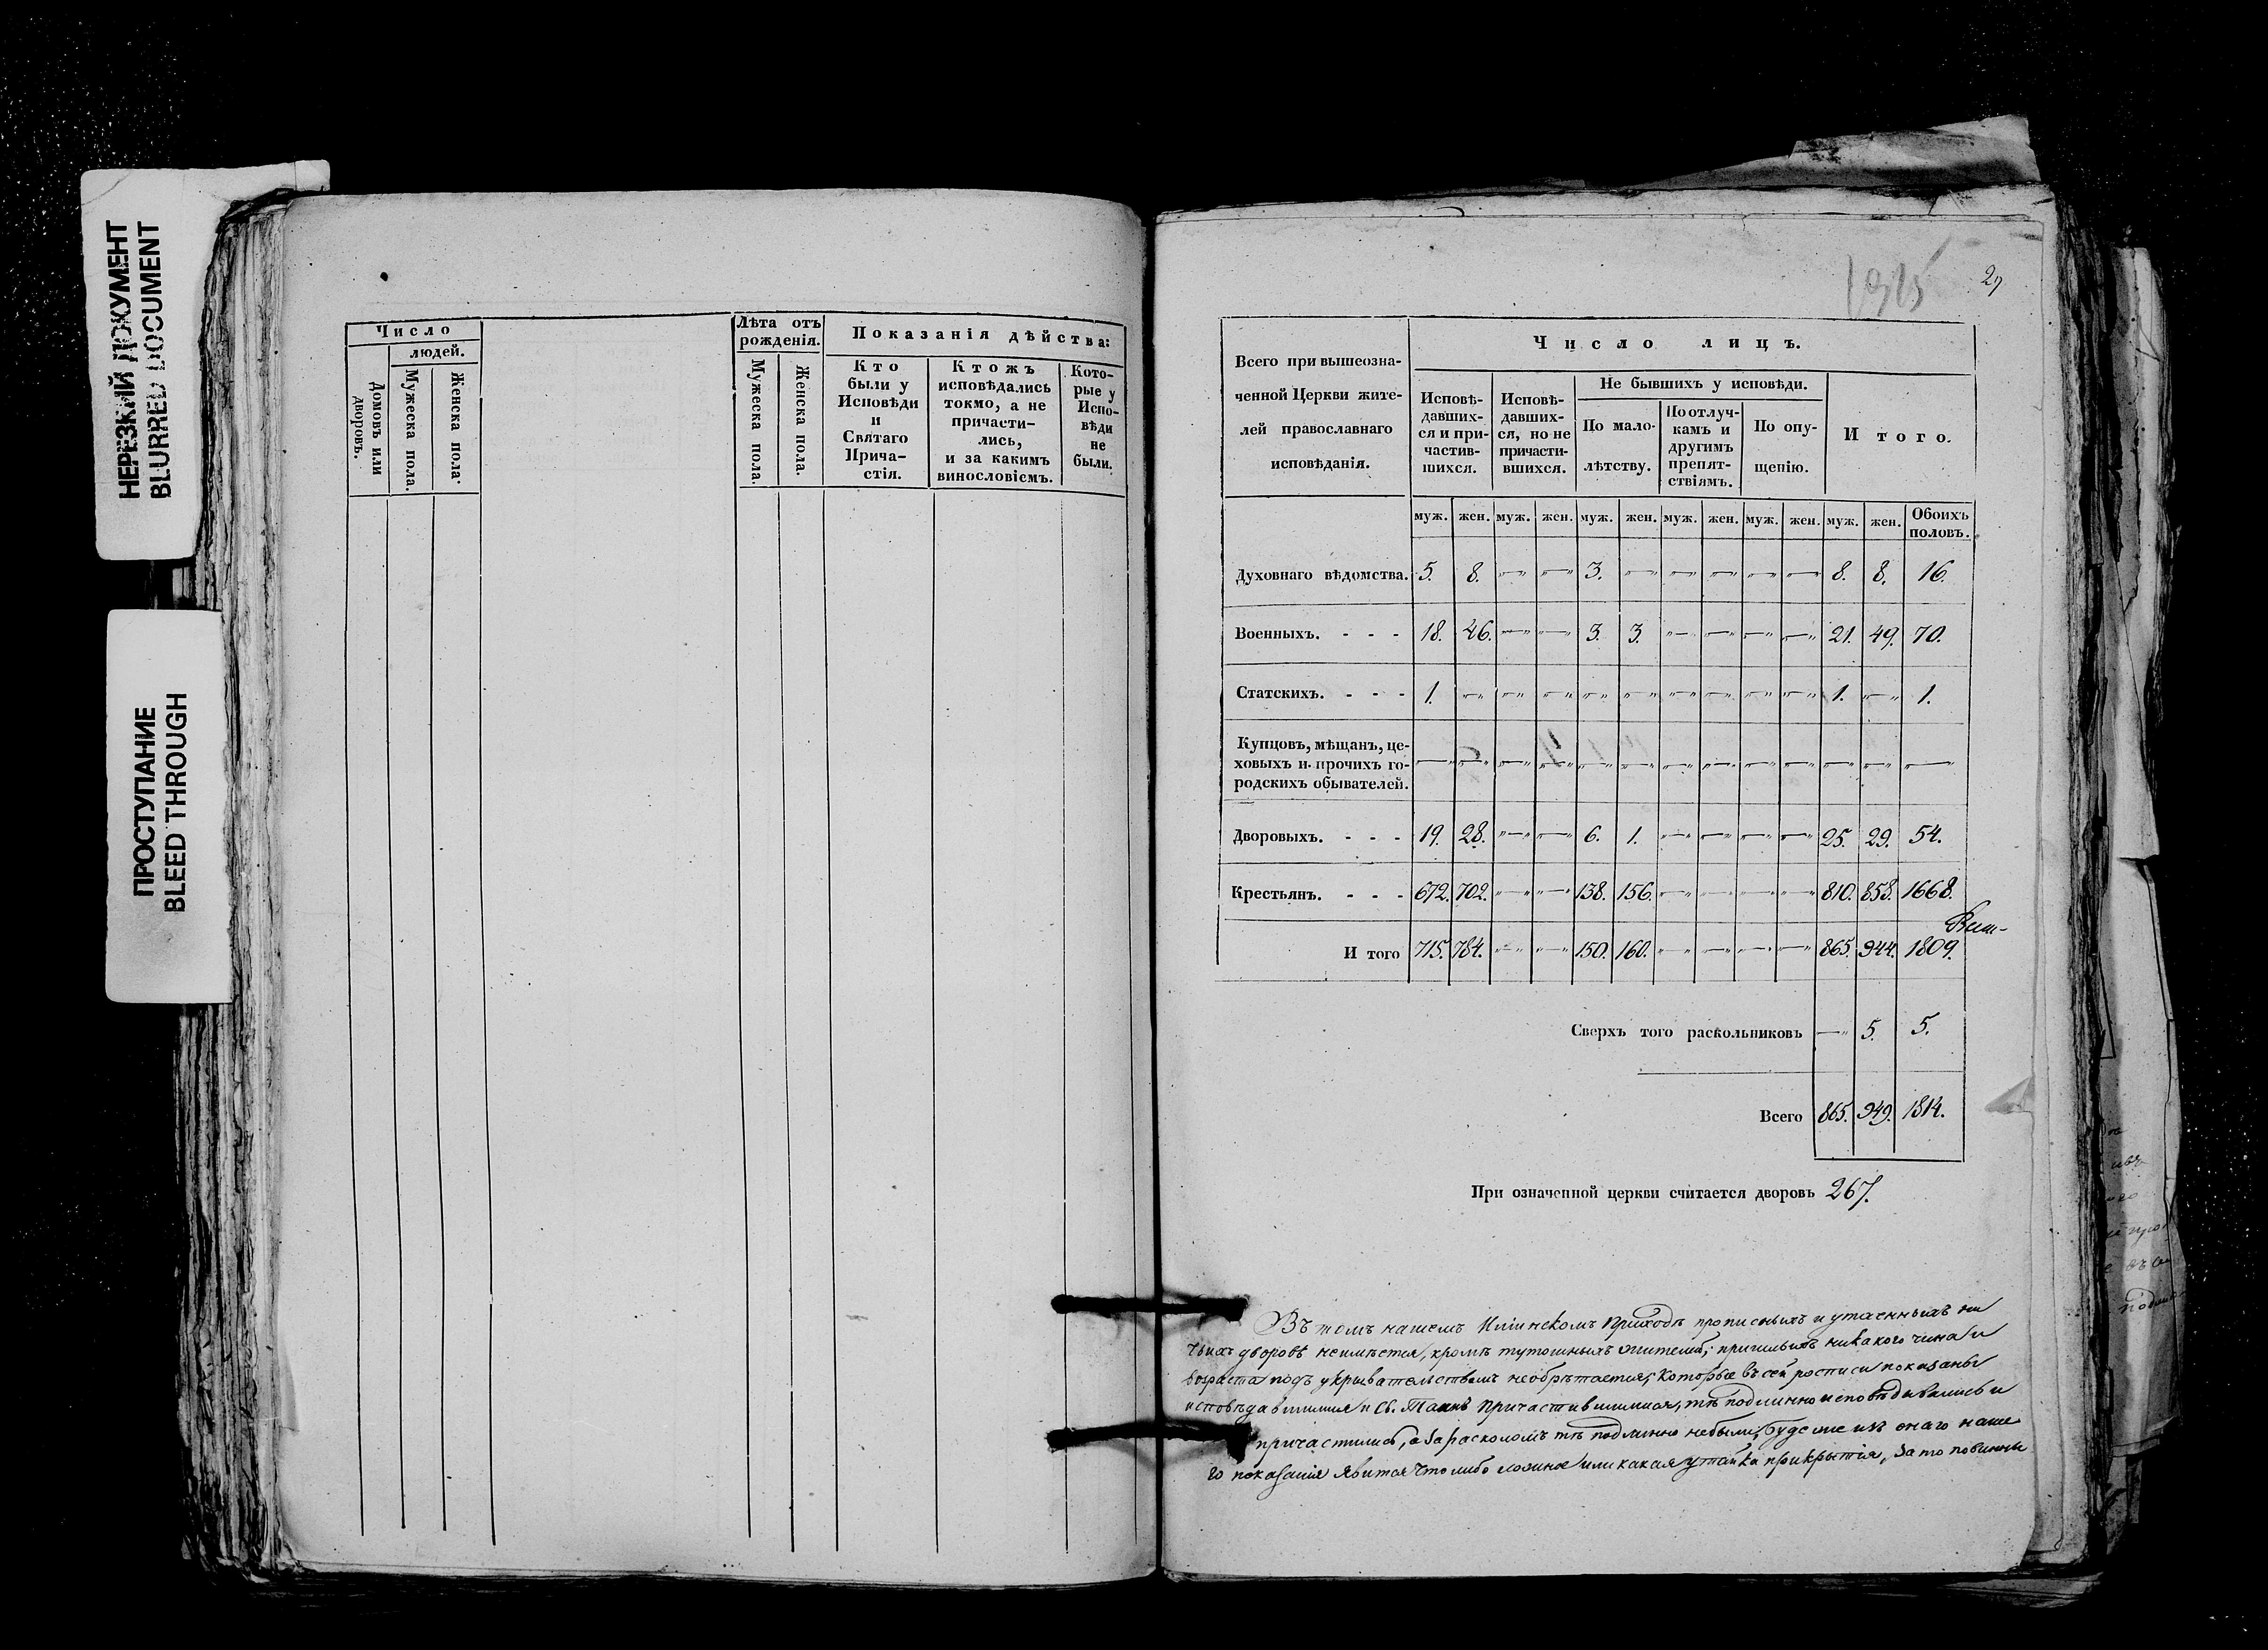 НЕРЕЗКИЙ ДОКУМЕНТ
BLURRED DOCUMENT
ПРОСТУПАНИЕ
BLEED THROUGH
Число
людей.
Домовъ или дворовъ.
Мужеска пола.
Женска пола.
Лѣта отъ рожденія.
Мужеска пола.
Женска пола.
Показанія дѣйства:
Кто были у Исповѣди и Святаго Прича-стія.
Ктожъ исповѣдались токмо, а не причасти-лись, и за какимъ винословіемъ.
Кото-рые у Испо-вѣди не были.
Всего при вышеозна-
ченной Церкви жите-
лей православнаго
исповѣданія.
Число лицъ.
Исповѣ-давших-ся и при-частив-шихся.
Исповѣ-давших-ся, но не причасти-вшихся.
Не бывшихъ у исповѣди.
По мало-лѣтству.
По отлуч-камъ и другимъ препят-ствіямъ.
По опу-щенію.
Итого.
муж. жен. муж. жен. муж. жен. муж. жен. муж. жен. муж. жен. Обоихъ половъ.
Духовнаго вѣдомства. 5. 8. — — 3. — — — — — 8. 8. 16.
Военныхъ. - - - 18. 46. — — 3. 3. — — — — 21. 49. 70.
Статскихъ. - - - 1. — — — — — — — — — 1. — 1.
Купцовъ, мѣщанъ, це-
ховыхъ и прочихъ го-
родскихъ обывателей. — — — — — — — — — — — — —
Дворовыхъ. - - - 19. 28. — — 6. 1. — — — — 25. 29. 54.
Крестьянъ. - - - 672. 702. — — 138. 156. — — — — 810. 858. 1668.
И того 715. 784. — — 150. 160. — — — — 865. 944. 1809.
Сверхъ того раскольниковъ — 5. 5.
Всего 865. 949. 1814.
При означенной церкви считается дворовъ 267.
Въ томъ нашемъ Илiинскомъ Приходѣ прописныхъ и утаенныхъ ни
чьихъ дворовъ неимѣется, кромѣ тутошныхъ жителей, пришлыхъ никакого чина и
возраста подъ укрывательствомъ необрѣтается; Которые въ сей росписи показаны
исповѣдавшимися и Св. Таинъ Причастившимися, тѣ подлинно исповѣдывались и
причастились, а за расколомъ тѣ подлинно небыли; Будеже изъ онаго наше
го показанія явится что либо ложное или какая утайка прикрытія, за то повинны